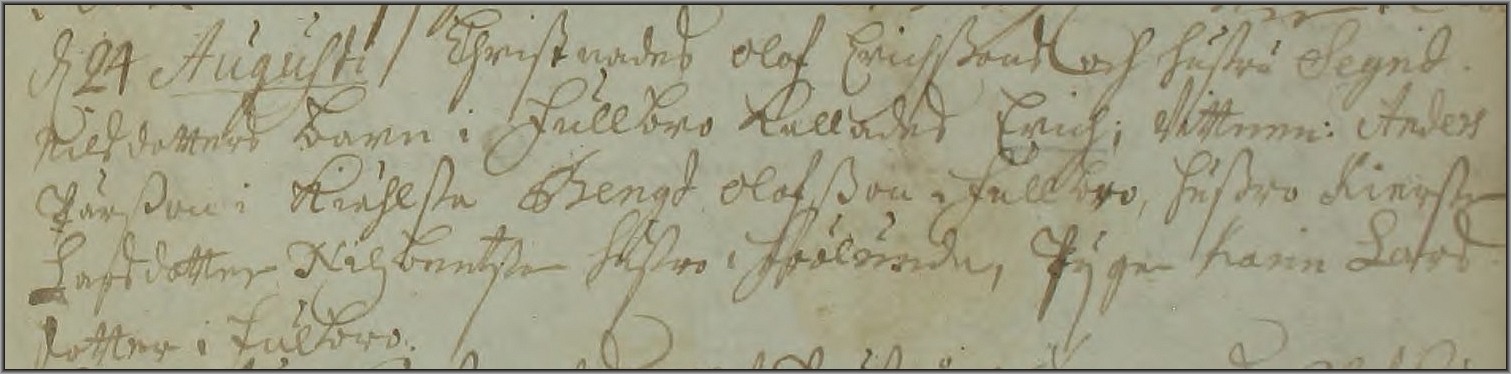 d 24 Augusti Christnades Olof Erichssons och hustru Segnd
Nilsdotters barn i Fullbro Kallades Erich; Vittnen: Anders
Pärsson i Kiählsta Bengt Olofsson i Fullbro, hustro Kierstin
Larsdotter hustro i Pigan Karin Lars-
dotter i Fulbro.